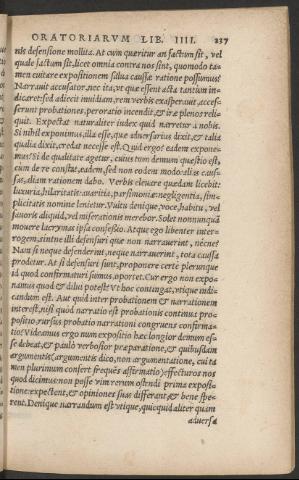 ORATORIARVM LIB. IIII. 237
nis defensione mollita. At cum quæritur an factum sit, vel
quale factum sit, licet omnia contra nos sint, quomodo ta-
men euitare expositionem salua caussæ ratione possumus?
Narrauit accusator, nec ita, vt quæ essent acta tantum in-
dicaret: sed adiecit inuidiam, rem verbis exasperauit, acces-
serunt probationes, peroratio incendit, & iræ plenos reli-
quit. Expectat naturaliter iudex quid narretur à nobis.
Si nihil exponimus, illa esse, quæ aduersarius dixit, & talia
qualia dixit, credat necesse est. Quid ergo? eadem expone-
mus? Si de qualitate agetur, cuius tum demum quæstio est,
cum de re constat, eadem, sed non eodem modo: alias caus-
sas, aliam rationem dabo. Verbis eleuare quædam licebit:
luxuria, hilaritatis: auaritia, parsimoniæ: negligentia, sim-
plicitatis nomine lenietur. Vultu denique, voce, habitu, vel
fauoris aliquid, vel miserationis merebor. Solet nonnunquã
mouere lacrymas ipsa confessio. Atque ego libenter inter-
rogem, sintne illi defensuri quæ non narrauerint, nécne?
Nam si neque defenderint, neque narrauerint, tota caussa
prodetur. At si defensuri sunt, proponere certè plerunque
id quod confirmaturi sumus, oportet. Cur ergo non expo-
namus quod & dilui potest? Vt hoc contingat, vtique indi-
candum est. Aut quid inter probationem & narrationem
interest, nisi quod narratio est probationis continua pro-
positio, rursus probatio narrationi congruens confirma-
tio? Videamus ergo num expositio hæc longior demum es-
se debeat, & paulò verbosior præparatione, & quibusdam
argumentis (argumentis dico, non argumentatione, cui ta-
men plurimum confert frequēs affirmatio) effecturos nos
quod dicimus: non posse vim rerum ostendi prima exposi-
tione: expectent, & opiniones suas differant, & bene spe-
rent. Denique narrandum est vtique, quicquid aliter quàm
aduersa